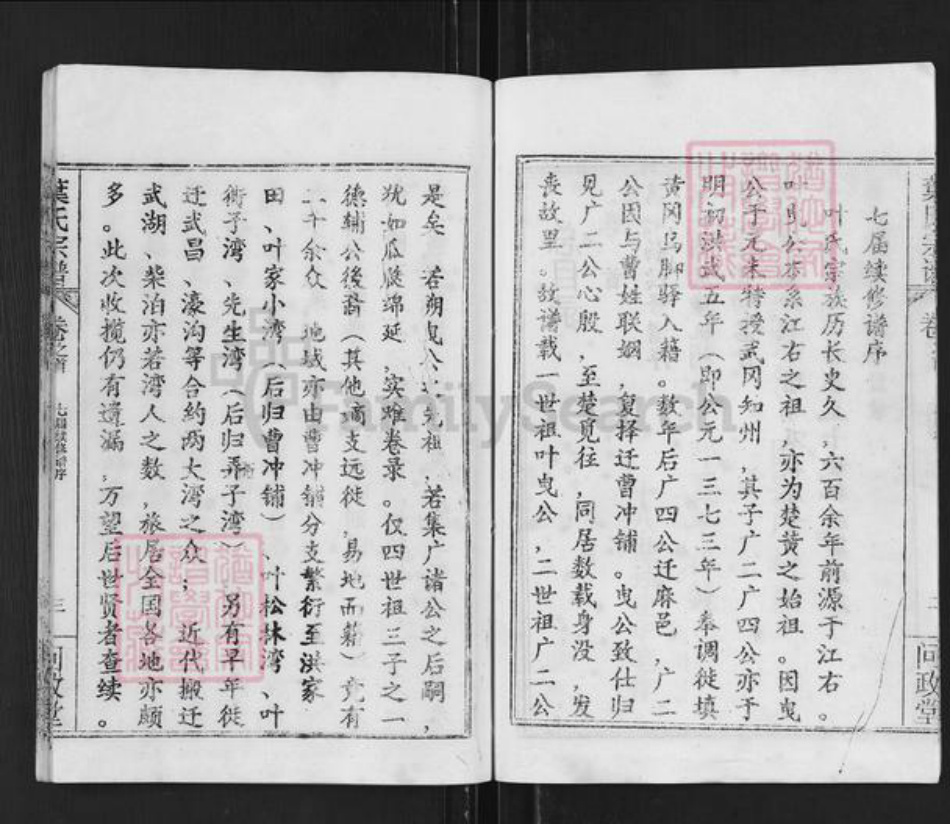 七届续修谱序
叶氏宗族历长史久,六百余年前源于江右。
叶曳公本系江右之祖,亦为楚黄之始祖。因曳
公于元末特授武冈知州,其子广二广四公亦于
明初洪武五年(即公元一三七三年)奉调徙填
黄冈乌脚驿入籍。数年后广四公迁麻邑,广二
公因与曹姓联姻,复择迁曹冲铺。曳公致仕归
见广二公心殷,至楚觅往,同居数载身没,发
丧故里。故谱载一世祖叶曳公,二世祖广二公
葉氏宗譜
问政堂
是矣 若朔曳公之先祖,若集广诸公之后嗣,
犹如瓜瓞绵延,实难卷录。仅四世祖三子之一
德辅公後裔(其他嫡支远徙,易地而籍)竟有
二千余众 地域亦由曹冲铺分支繁衍至洪家
田、叶家小湾(后归曹冲铺)、叶松林湾、叶
衖子湾、先生湾(后归弄子湾)另有早年徙
迁武昌、濠沟等合约两大湾之众;近代搬迁
武湖、柴泊亦若湾人之数,旅居全国各地亦颇
多。此次收揽仍有遗漏,万望后世贤者查续。
葉氏宗譜
卷之首
七届续修谱序
三
问政堂
FamilySearch